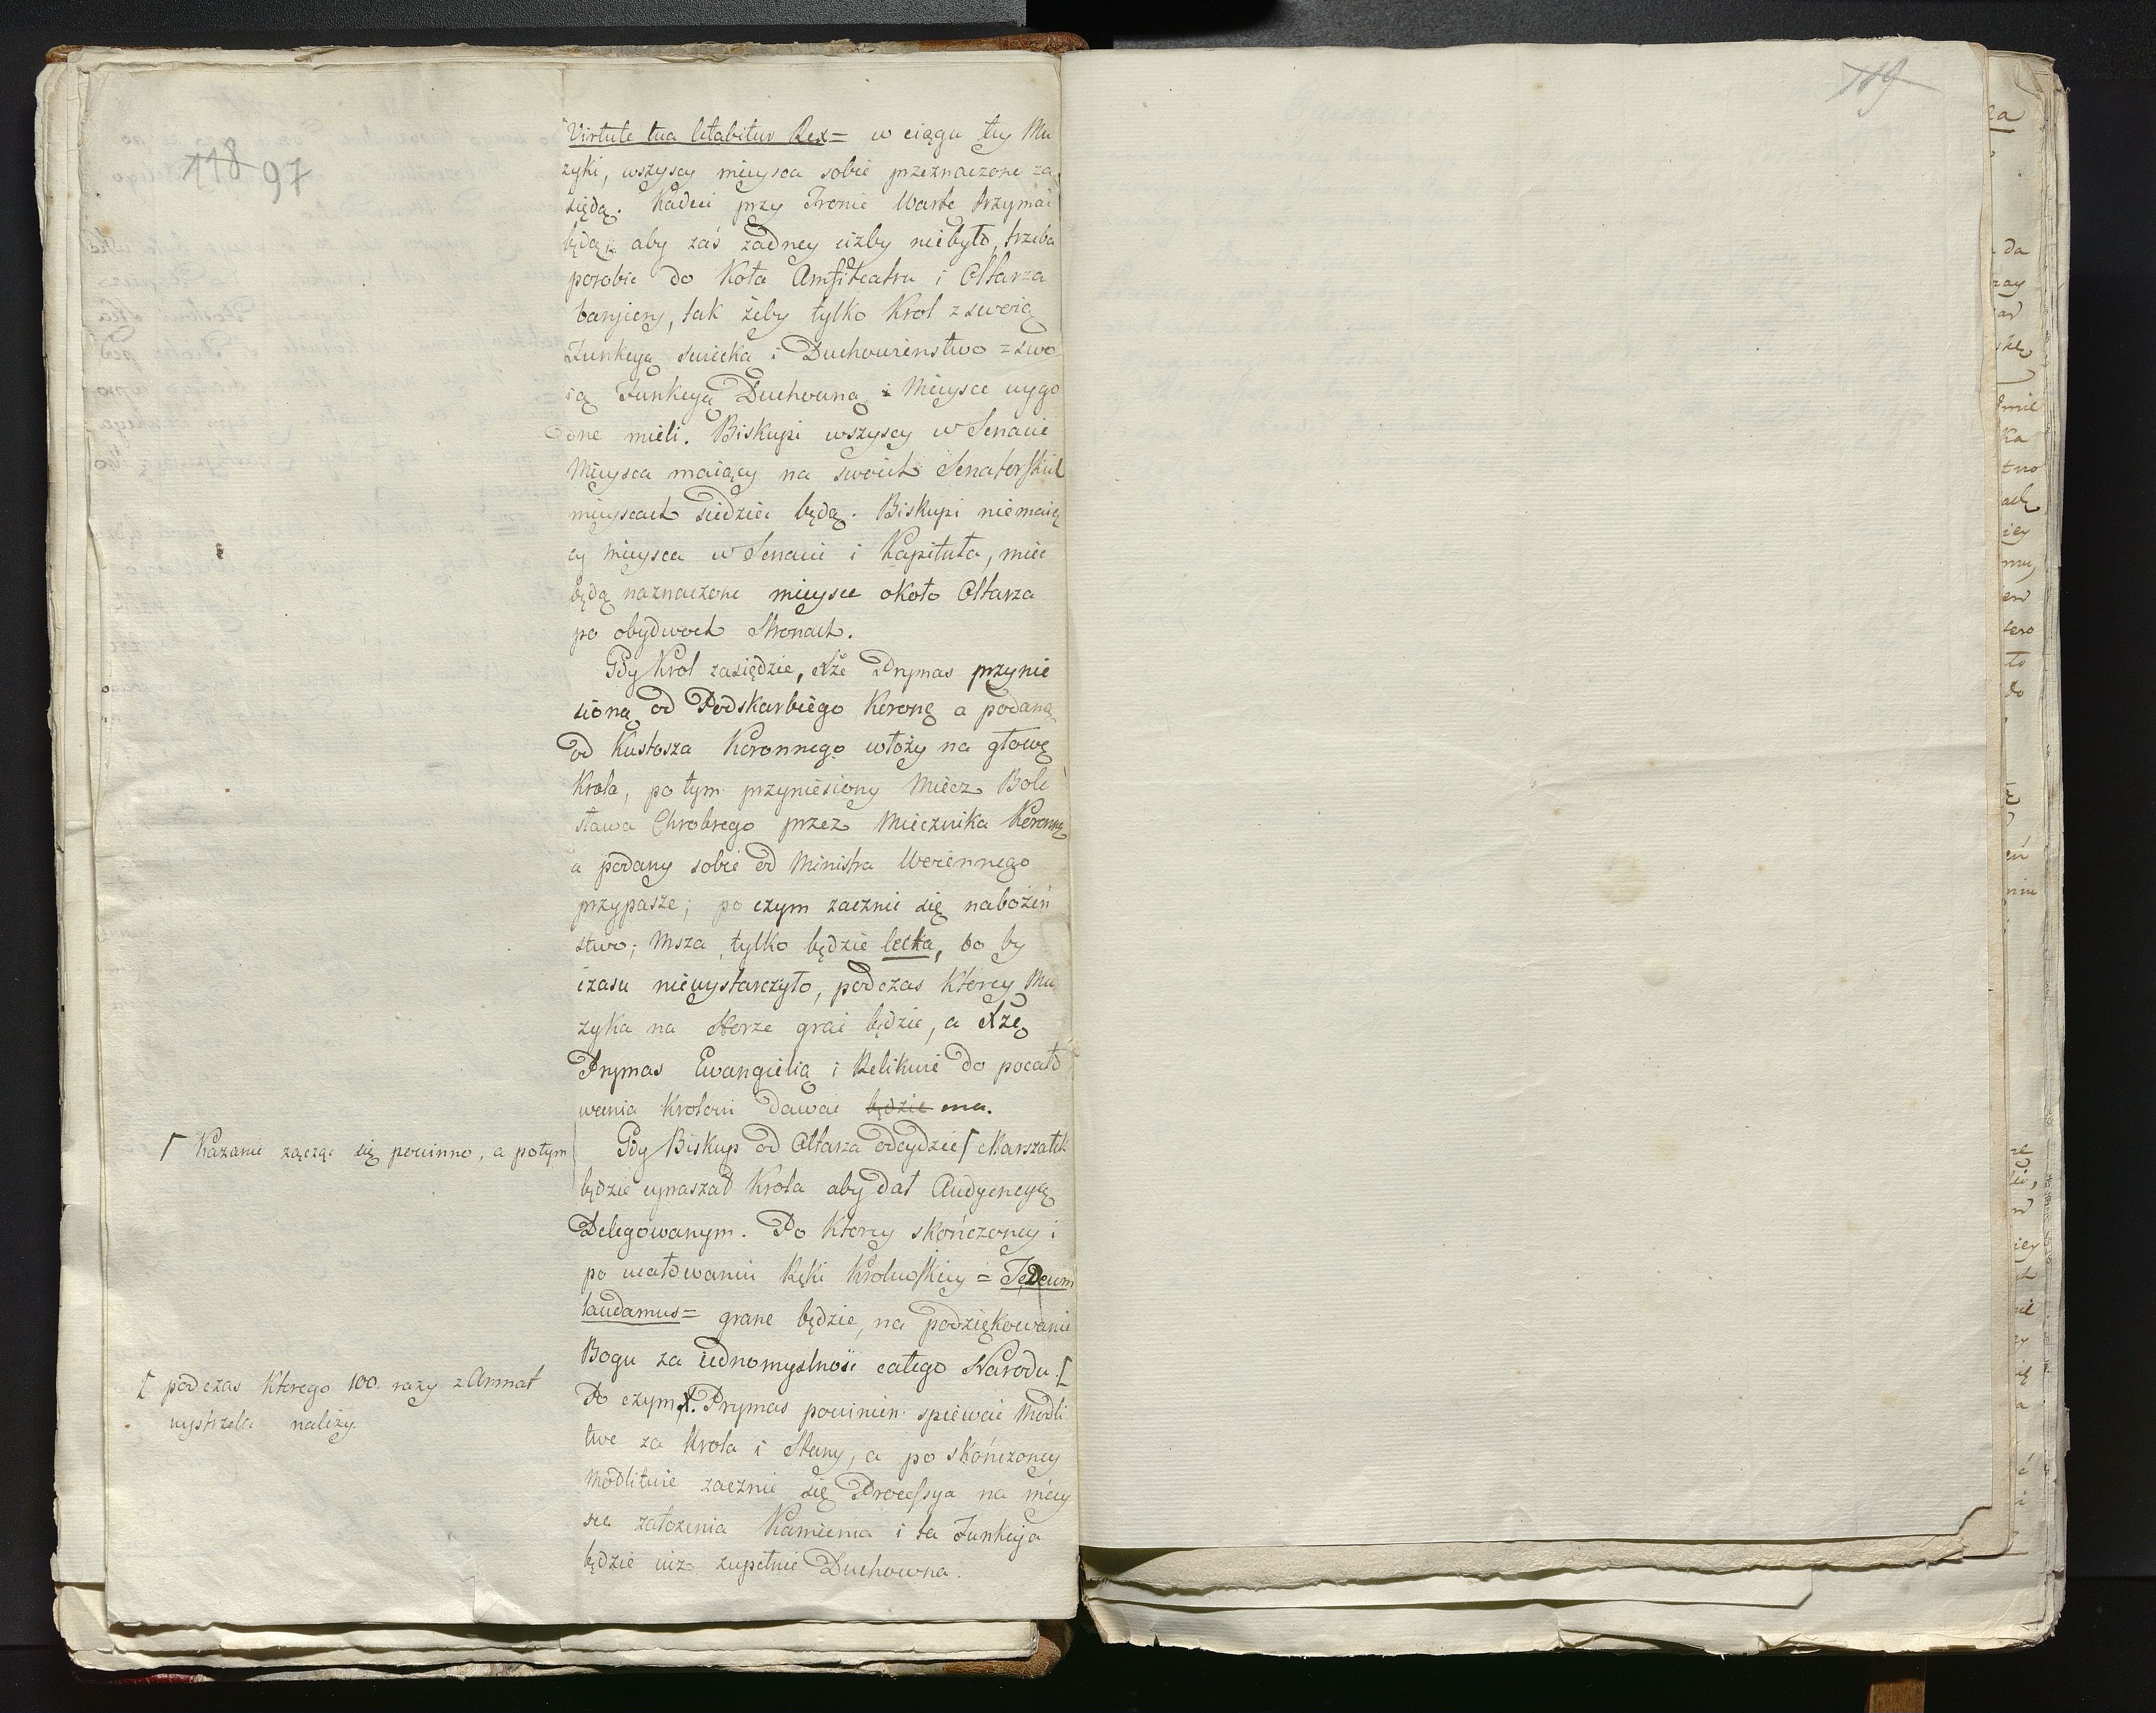 118 97
"Virtute tua letabitur Rex= w ciągu tey Mu
zyki, wszyscy mieysca sobie przeznaczone za
siędą. Kadeci przy Tronie Warte trzymać
będą; aby zaś żadney ciżby niebyło, trzeba
porobić do Koła Amfiteatru i Ołtarza
barjiery, tak żeby tylko Krol z swoią
Funkcyą swiecką i Duchowienstwo z swo
ią Funkcyą Duchowną Mieysce wygo
dne mieli. Biskupi wszyscy w Senacie
Mieysca maiący na swoich Senatorskich
mieyscach siedzieć będą. Biskupi niemaią
cy mieysca w Senacie i Kapituła, mieć
będą naznaczone mieysce około Ołtarza
po obydwoch Stronach.
Gdy Krol zasiędzie, Xże Prymas przynie
sioną od Podskarbiego Koronę a podaną
od Kustosza Koronnego włoży na głowę
Krola, po tym przyniesiony Miecz Bole
sława Chrobrego przez Miecznika Koronne
a podany sobie od Ministra Woiennego
przypasze; po czym zacznie się nabożeń
stwo; Msza tylko będzie lecka, bo by
czasu niewystarczyło, podczas Ktorey Mu
zyka na Horze grać będzie, a Xżę
Prymas Ewangielią i Relikwie do pocało
wania Krolowi dawać będzie ma.
Gdy Biskup od Ołtarza odeydzie [ Marszałek
[ Kazanie zacząć się powinno, a potym
będzie upraszał Krola aby dał Audyencyą
Delegowanym. Po Ktorey skończoney i
po ucałowaniu Ręki Krolewskiey = Te Deum
laudamus = grane będzie, na podziękowanie
Bogu za iednomyslność całego Narodu. [
[ podczas Ktorego 100. razy z Armat
wystrzelić należy.
Po czym X. Prymas powinien spiewać Modli
twe za Krola i Stany, a po skończoney
Modlitwie zacznie się Processya na miey
sce założenia Kamienia i ta Funkcya
będzie iuż zupełnie Duchowna.
119